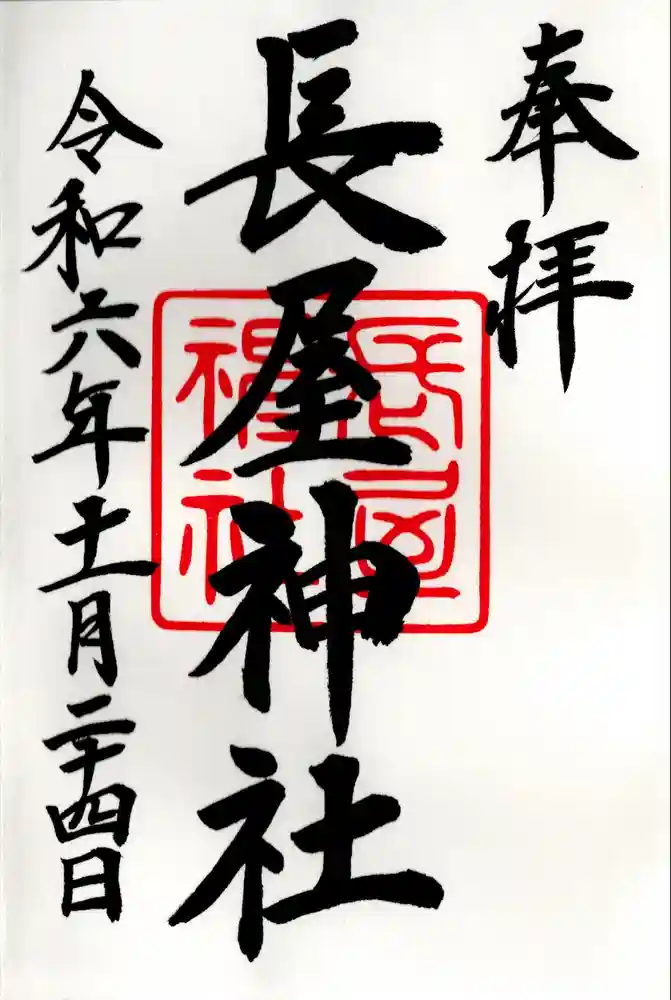 奉拝
長屋神社
長屋神社
令和六年十一月二十四日